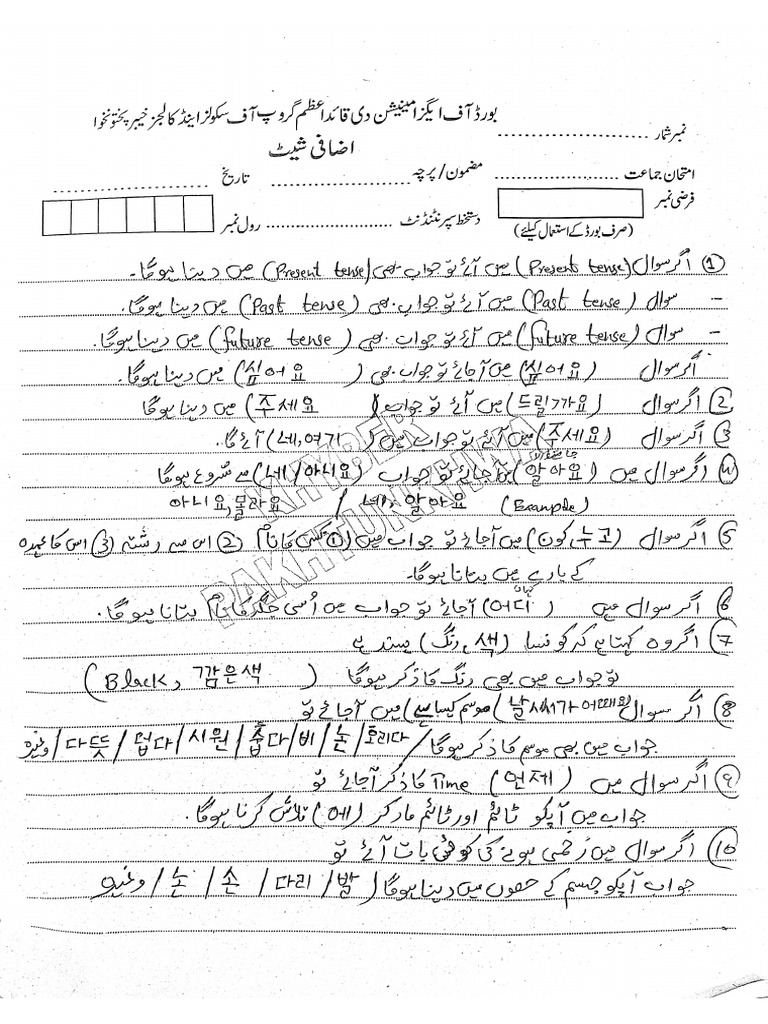 بورڈ آف ایگزامینیشن دی قائداعظم گروپ آف سکولز اینڈ کالجز خیبر پختونخوا
نمبر شمار ......................
اضافی شیٹ
امتحان جماعت ...................... مضمون/پرچہ ...................... تاریخ ......................
فرضی نمبر
(صرف بورڈ کے استعمال کیلئے) دستخط سپرنٹنڈنٹ ...................... رول نمبر
① اگر سوال (Present tense) میں آئے تو جواب بھی (Present tense) میں دینا ہوگا۔
- سوال (Past tense) میں آئے تو جواب بھی (Past tense) میں دینا ہوگا۔
- سوال (future tense) میں آئے تو جواب بھی (future tense) میں دینا ہوگا۔
اگر سوال (싶어요) میں آجائے تو جواب بھی (싶어요) میں دینا ہوگا۔
② اگر سوال (드릴까요) میں آئے تو جواب (주세요) میں دینا ہوگا
③ اگر سوال (주세요) میں آئے تو جواب میں (네, 여기) آئے گا۔
④ اگر سوال میں (알아요) میں آجائے تو جواب (네/아니요) سے شروع ہوگا
(Example) 네, 알아요 / 아니요, 몰라요
⑤ اگر سوال (누고, کون) میں آجائے تو جواب میں ① کسی کا نام ② اس سے رشتہ ③ اس کا عہدہ
کے بارے میں بتانا ہوگا۔
⑥ اگر سوال میں (어디 کہاں) آجائے تو جواب میں اُسی جگہ کا نام بتانا ہوگا۔
⑦ اگر وہ کہتا ہے کہ کونسا (색, رنگ) پسند ہے
تو جواب میں بھی رنگ کا ذکر ہوگا (Black, 깜은색)
⑧ اگر سوال (날씨가 어때요) موسم کیسا ہے میں آجائے تو
جواب میں بھی موسم کا ذکر ہوگا / 흐리다 / 눈 / 비 / 춥다 / 시원 / 덥다 / 다뜻 / وغیرہ
⑨ اگر سوال میں (언제) Time کا ذکر آجائے تو
جواب میں آپکو ٹائم اور ٹائم مارکر (에) تلاش کرنا ہوگا۔
⑩ اگر سوال میں زخمی ہونے کی کوئی بات آئے تو
جواب آپکو جسم کے حصوں میں دینا ہوگا (발 / 다리 / 손 / 눈 / وغیرہ
KHYBER
PAKHTUNKHWA